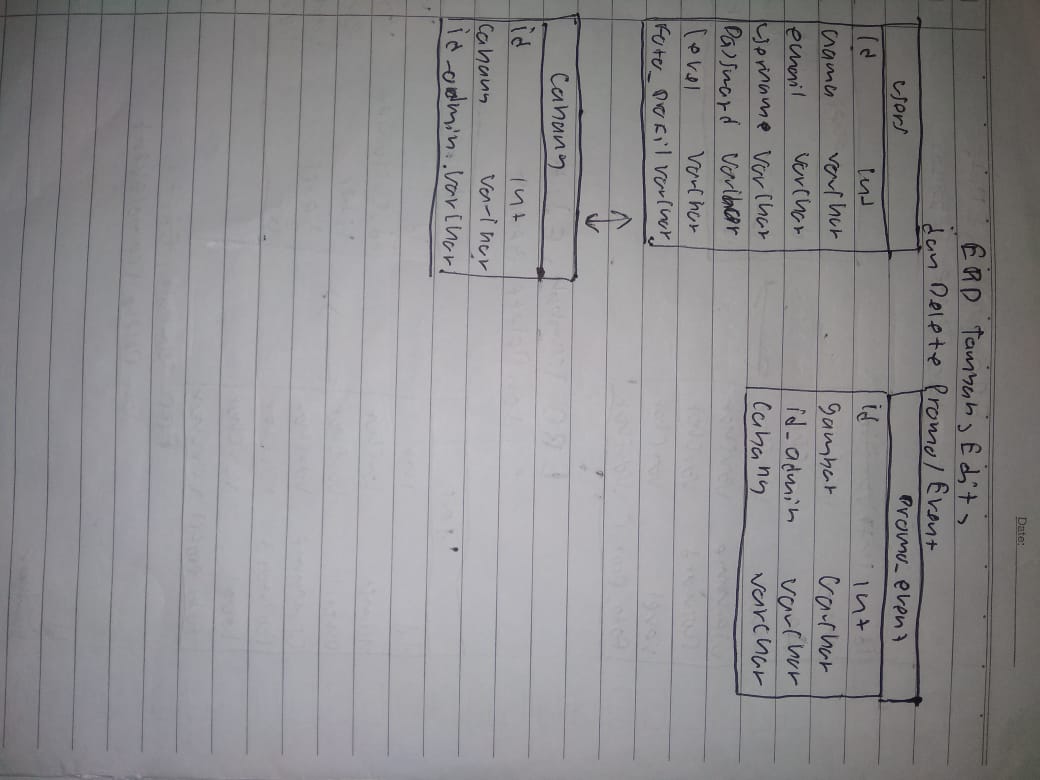 Date:
ERD Tambah, Edit,
dan Delete Promo/Event
users
id int
nama varchar
email varchar
username varchar
Password varchar
level varchar
foto_profil varchar
promo_event
id int
gambar varchar
id_admin varchar
Cabang varchar
Cabang
id int
cabang varchar
id_admin varchar